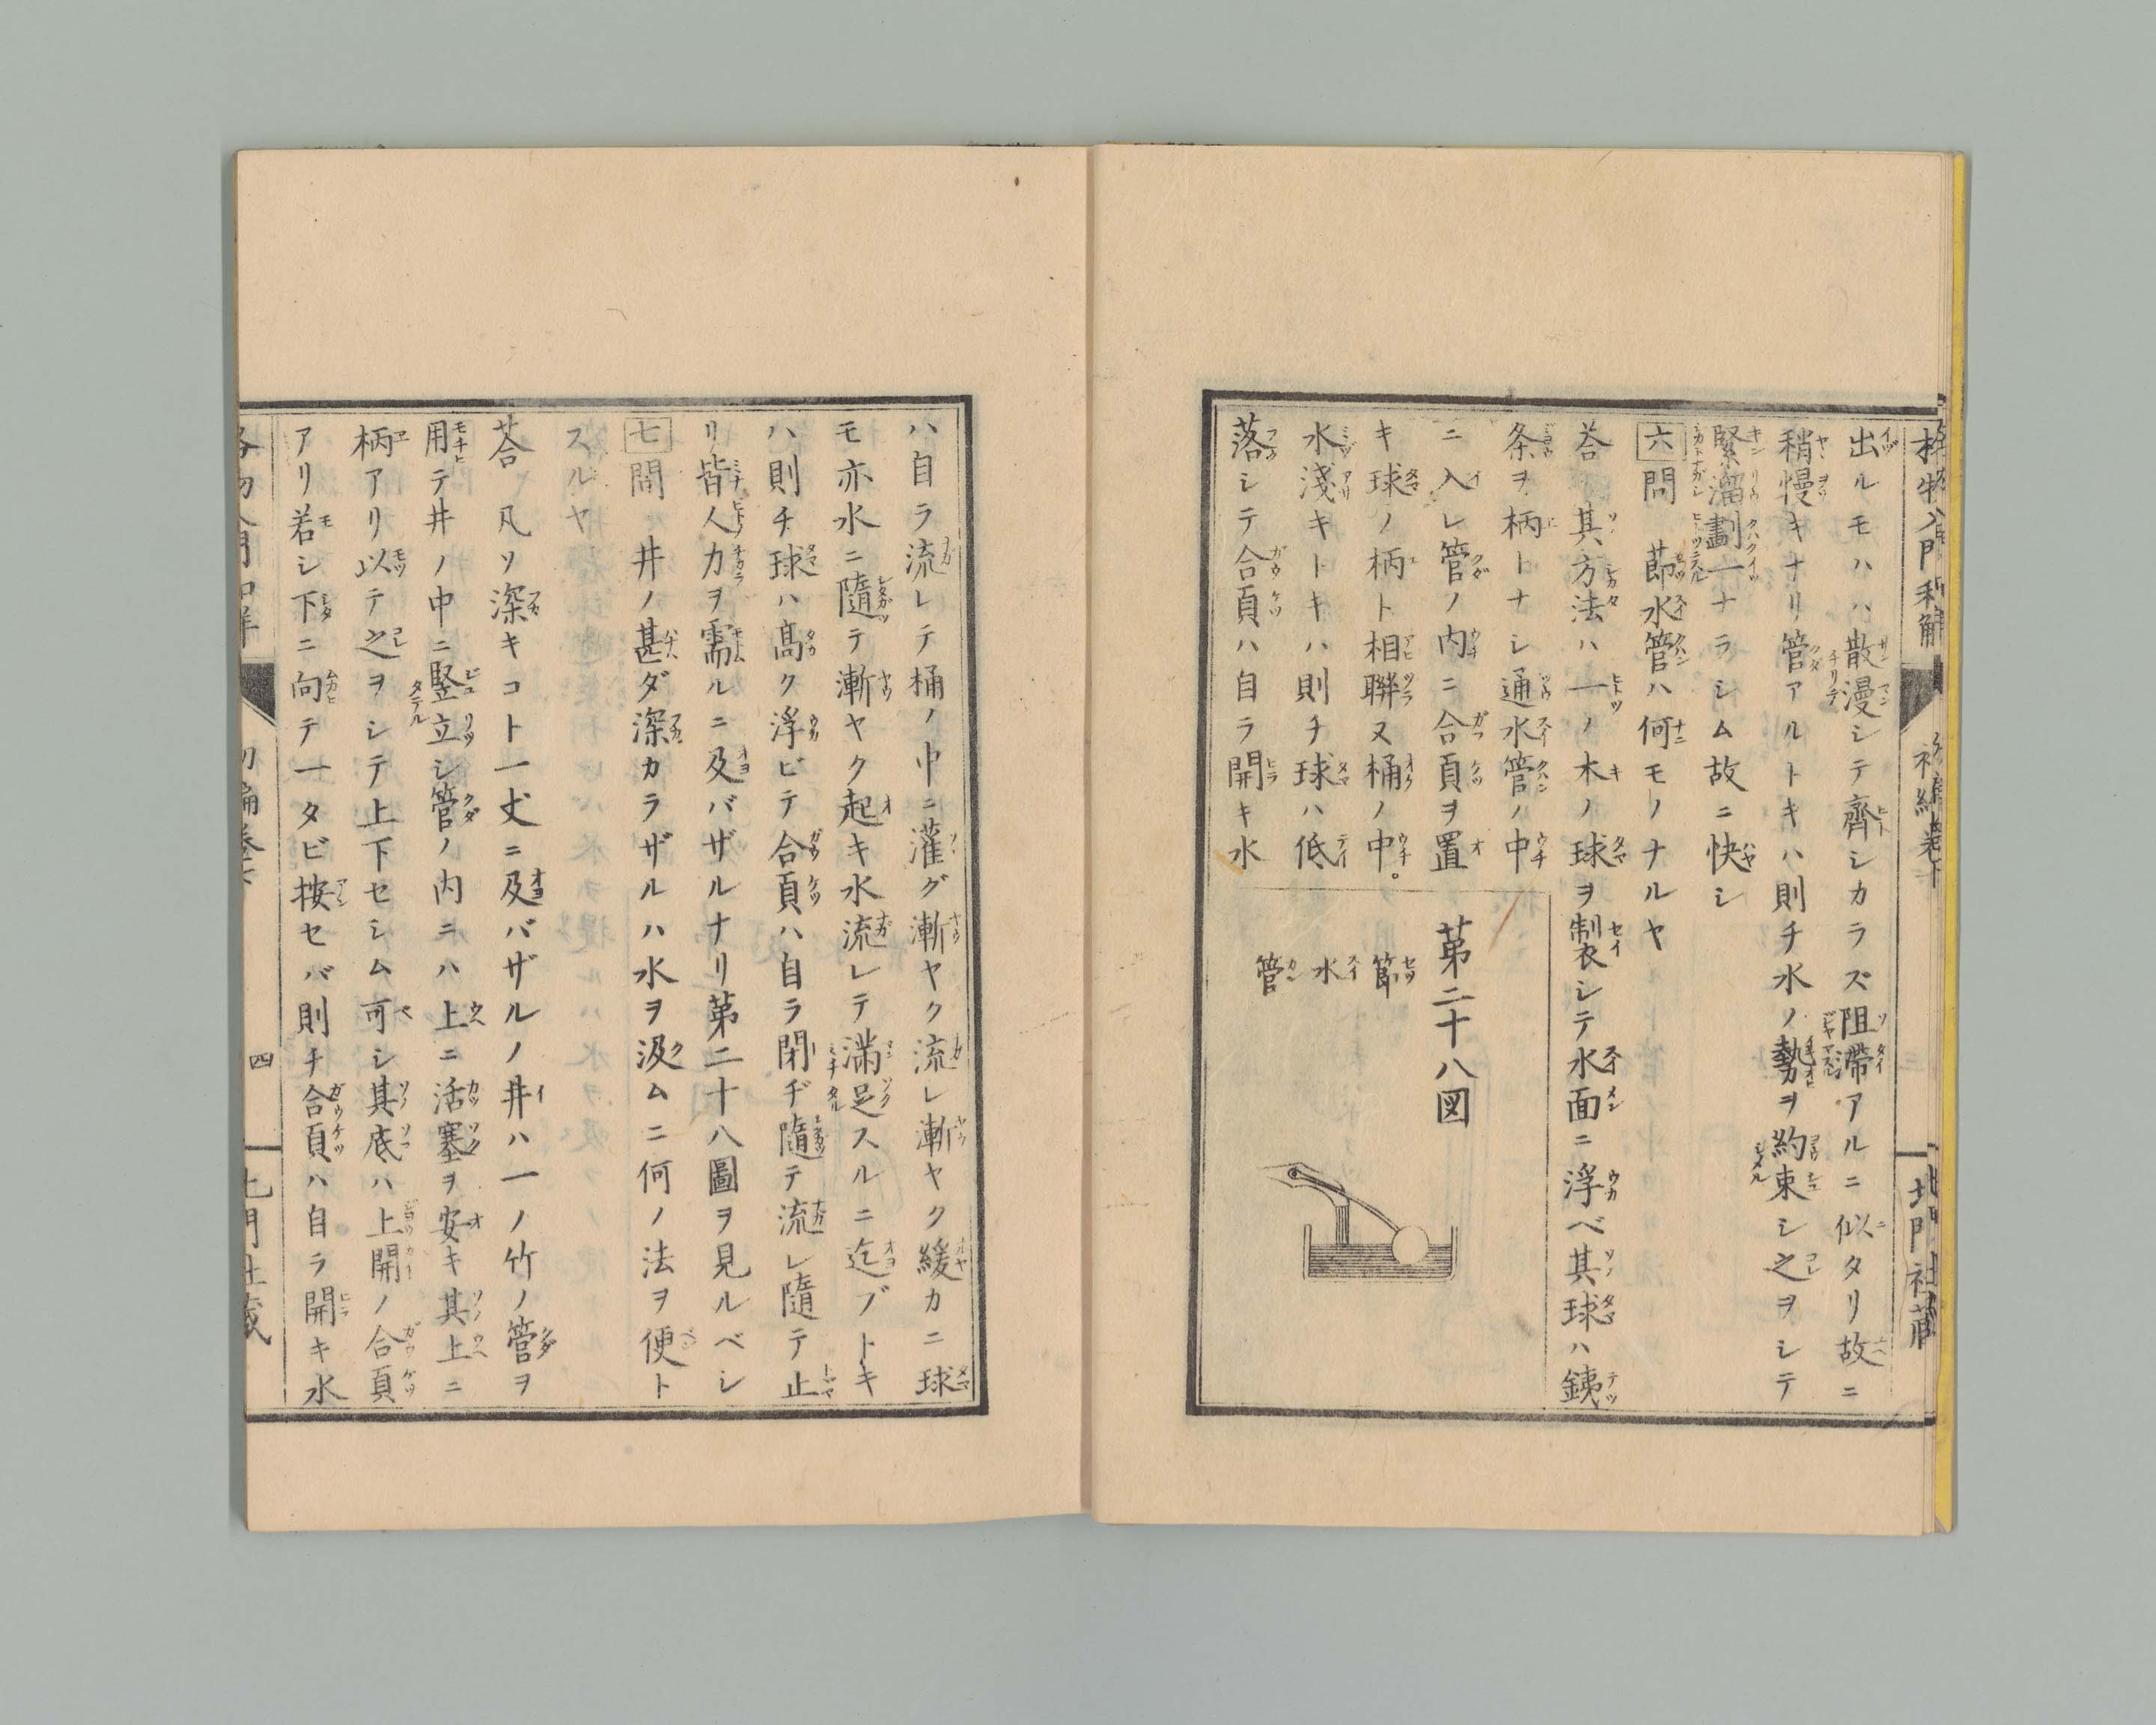 出ルモハハ散漫シテ齊シカラズ阻滯アルニ似タリ故ニ
稍慢キナリ管アルトキハ則チ水ノ勢ヲ約束シ之ヲシテ
緊溜劃一ナラシム故ニ快シ
六問 節水管ハ何モノナルヤ
荅 其方法ハ一ノ木ノ球ヲ制衣シテ水面ニ浮ベ其球ハ銕
条ヲ柄トナシ通水管ノ中
ニ入レ管ノ内ニ合頁ヲ置
キ球ノ柄ト相聯又桶ノ中。
水淺キトキハ則チ球ハ低
落シテ合頁ハ自ラ開キ水
第二十八図
節
水
管
ハ自ラ流レテ桶ノ中ニ灌グ漸ヤク流レ漸ヤク緩カニ球
モ亦水ニ隨テ漸ヤク起キ水流レテ滿足スルニ迄ブトキ
ハ則チ球ハ高ク浮ビテ合頁ハ自ラ閉ヂ隨テ流レ隨テ止
リ皆人力ヲ需ルニ及バザルナリ第二十八圖ヲ見ルベシ
七問 井ノ甚ダ深カラザルハ水ヲ汲ムニ何ノ法ヲ便ト
スルヤ
荅 凡ソ深キコト一丈ニ及バザルノ井ハ一ノ竹ノ管ヲ
用テ井ノ中ニ竪立シ管ノ内ニハ上ニ活塞ヲ安キ其上ニ
柄アリ以テ之ヲシテ上下セシム可シ其底ハ上開ノ合頁
アリ若シ下ニ向テ一タビ按セバ則チ合頁ハ自ラ開キ水
四